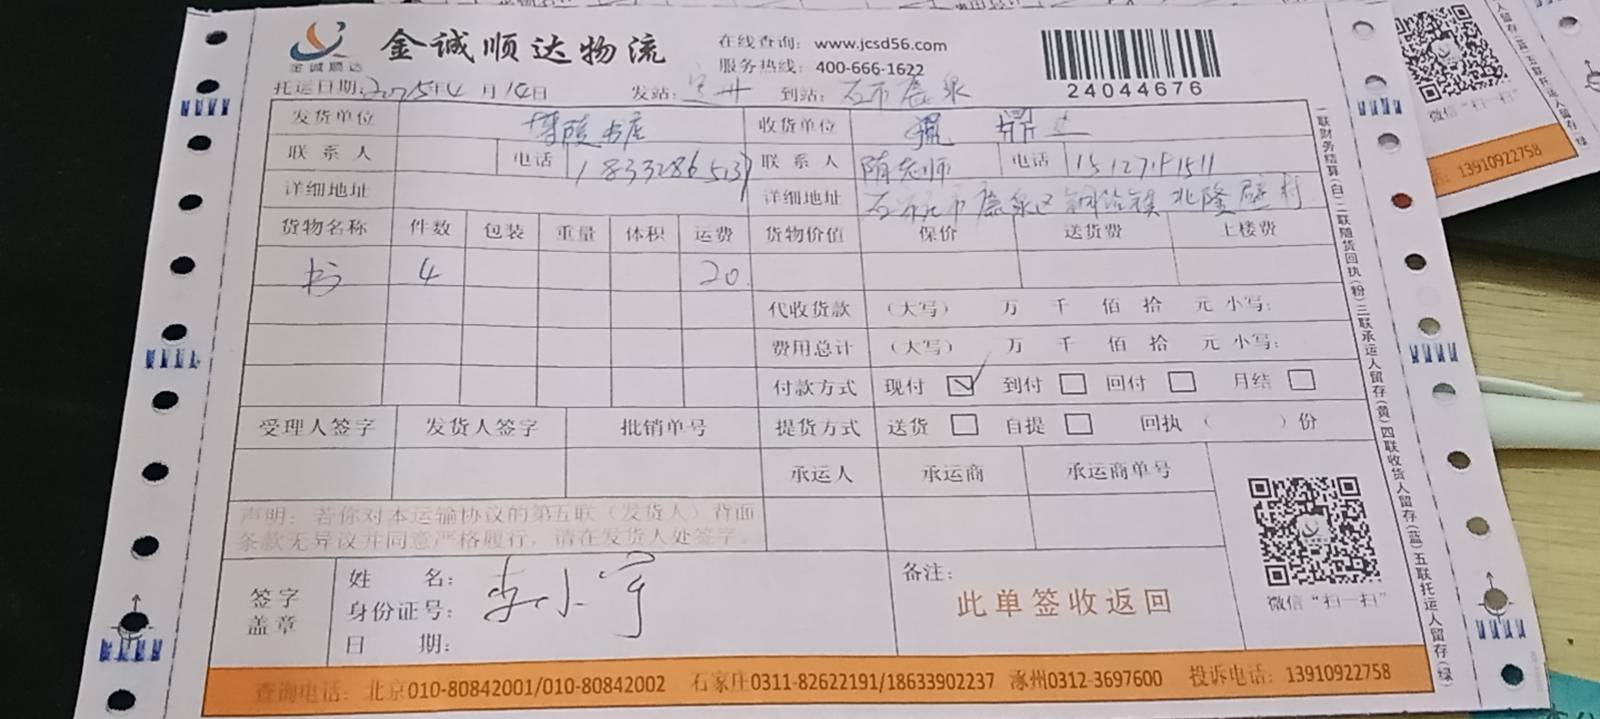 金诚顺达
金诚顺达物流
在线查询：www.jcsd56.com
服务热线：400-666-1622
24044676
托运日期：2025年4月14日 发站： 到站：石市鹿泉
发货单位 博陵书店 收货单位
联系人 电话 18332865137 联系人 隋老师 电话
详细地址 详细地址 石家庄市鹿泉区铜冶镇北隆壁村
货物名称 件数 包装 重量 体积 运费 货物价值 保价 送货费 上楼费
书 4 20
代收货款 （大写） 万 千 佰 拾 元 小写：
费用总计 （大写） 万 千 佰 拾 元 小写：
付款方式 现付 到付 回付 月结
受理人签字 发货人签字 批销单号 提货方式 送货 自提 回执（ ）份
承运人 承运商 承运商单号
声明：若你对本运输协议的第五联（发货人）背面
条款无异议并同意严格履行，请在发货人处签字。
签字
盖章
姓 名：李小宇
身份证号：
日 期：
备注：
此单签收返回
微信“扫一扫”
查询电话：北京010-80842001/010-80842002 石家庄0311-82622191/18633902237 涿州0312-3697600 投诉电话：13910922758
一联财务结算(白)二联随货回执(粉)三联承运人留存(黄)四联收货人留存(蓝)五联托运人留存(绿)
微信“扫一扫”
13910922758